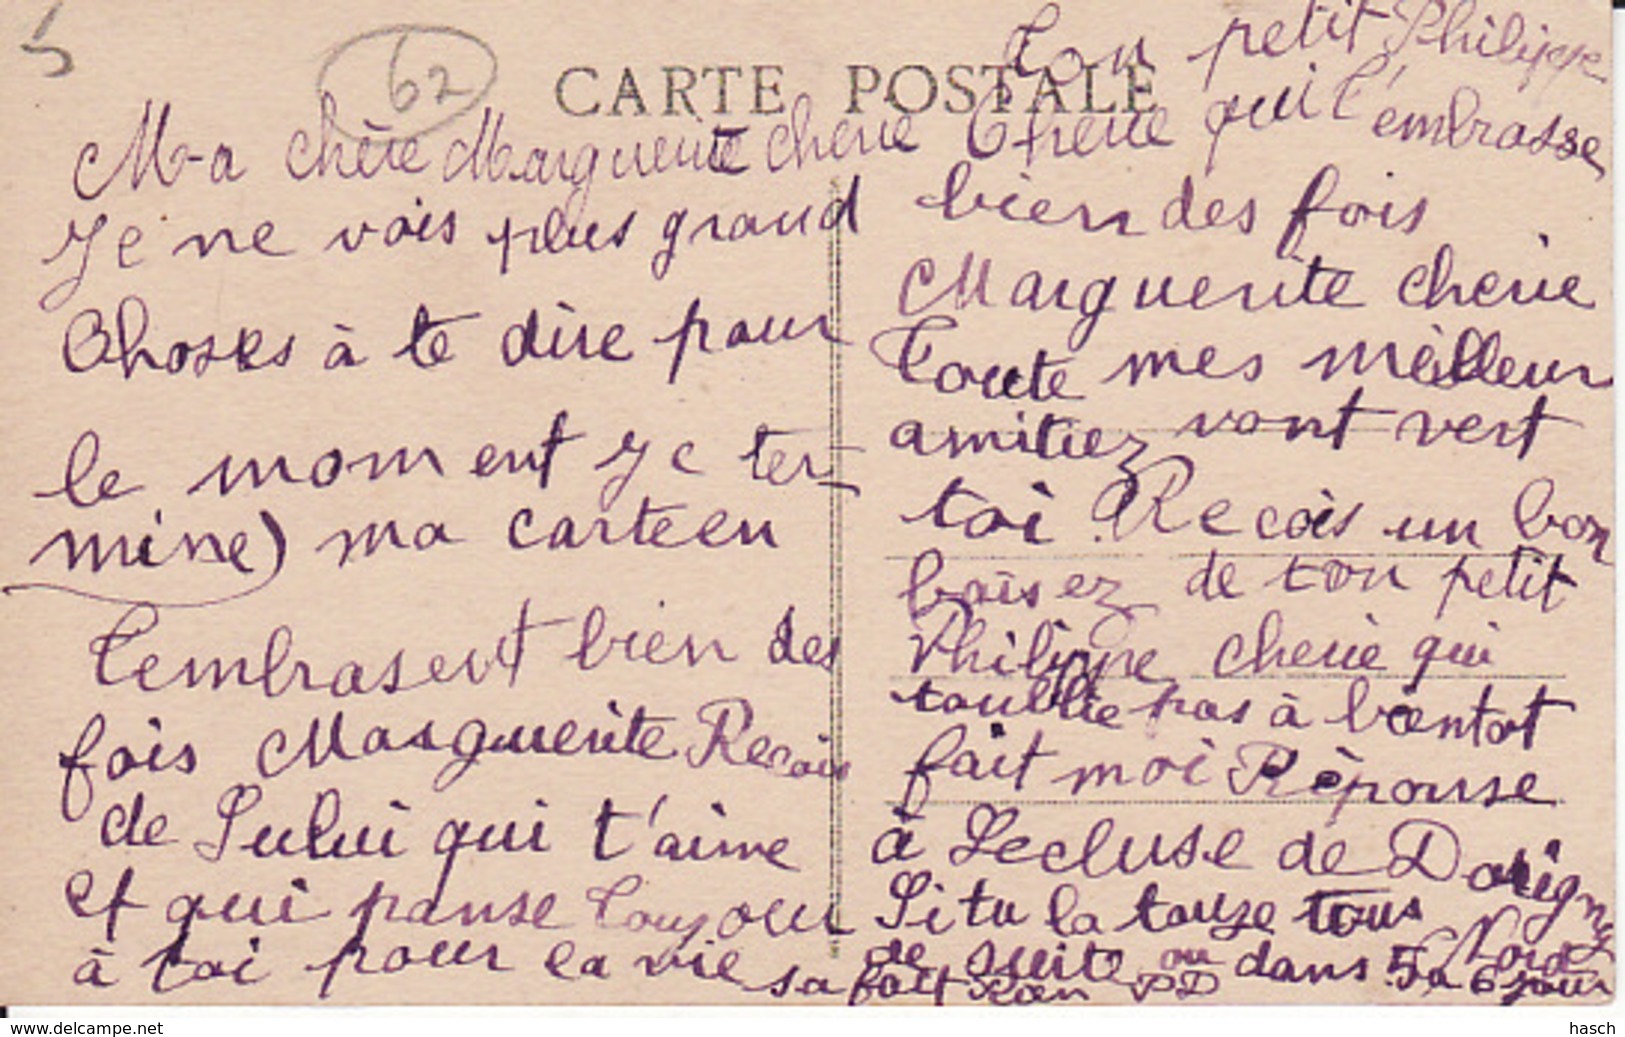 5
62
CARTE POSTALE
Ma chère Marguerite cherie
Je ne vois plus grand
Choses à te dire pour
le moment je ter-
mine) ma carte en
t'embrasent bien des
fois Marguerite Recois
de Sului qui t'aime
et qui panse toujour
à toi pour la vie
Ton petit Philippe
Cherie qui t'embrasse
bien des fois
Marguerite cherie
Toute mes meilleur
amitiez vont vert
toi. Recois un bon
baisez de ton petit
Philippe cherie qui
toublie pas à bientot
fait moi Réponse
à Lecluse de Dorigny
Nord
Si tu la
de suite ou dans 5 a 6 jour
sa fait rien PD
www.delcampe.net
hasch